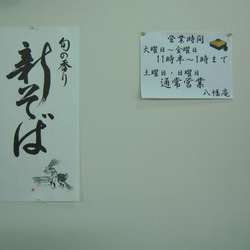 旬の香り
新そば
営業時間
火曜日～金曜日
11時半～1時まで
土曜日・日曜日
通常営業
八幡庵